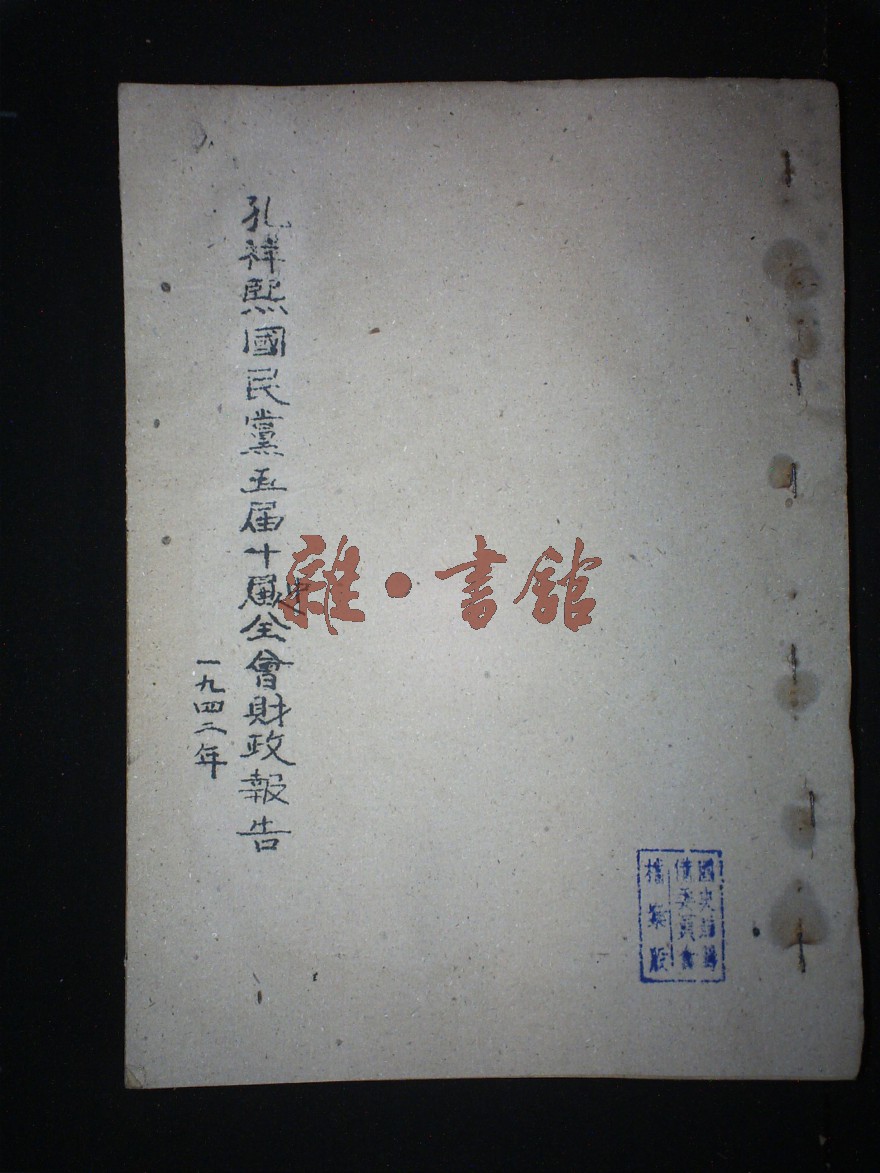 孔祥熙國民黨五届十届全會財政報告
一九四二年
雜·書館
國史館籌
備委員會
檔案股